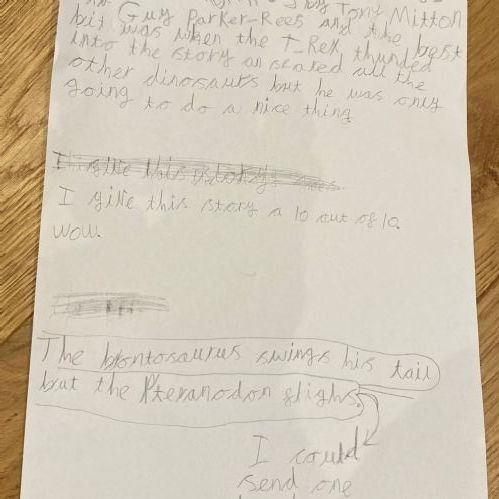 by Tony Mitton
Guy Parker-Rees and the best
bit was when the T-Rex thunded
into the story an scared all the
other dinosaurs but he was only
going to do a nice thing
I give this story
I give this story a 10 out of 10.
wow.
The brontosaurus swings his tail
but the Pteranodon flighs.
I could
send one